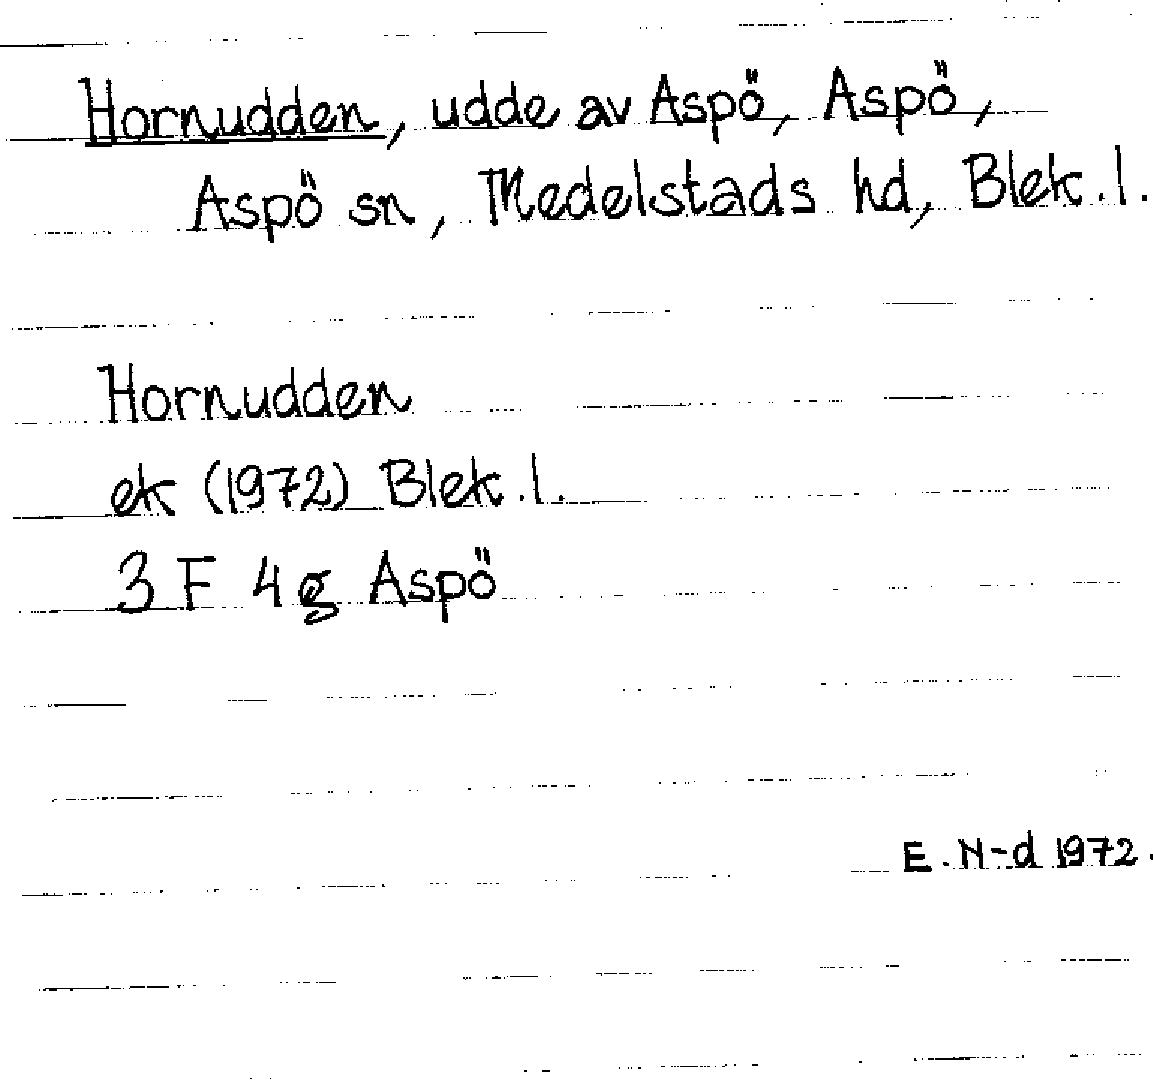 Hornudden, udde av Aspö, Aspö,
Aspö sn, Medelstads hd, Blek.l.
Hornudden
ek (1972) Blek.l.
3 F 4 g Aspö
E. N-d 1972.